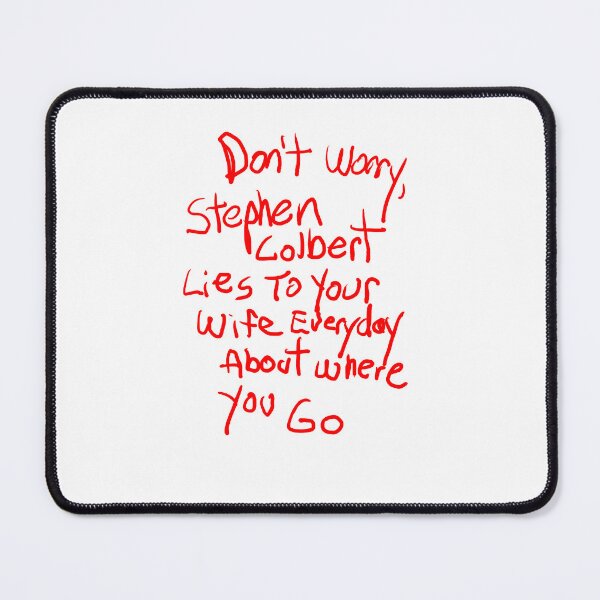 Don't Worry,
Stephen
Colbert
Lies To Your
Wife Everyday
About where
you Go